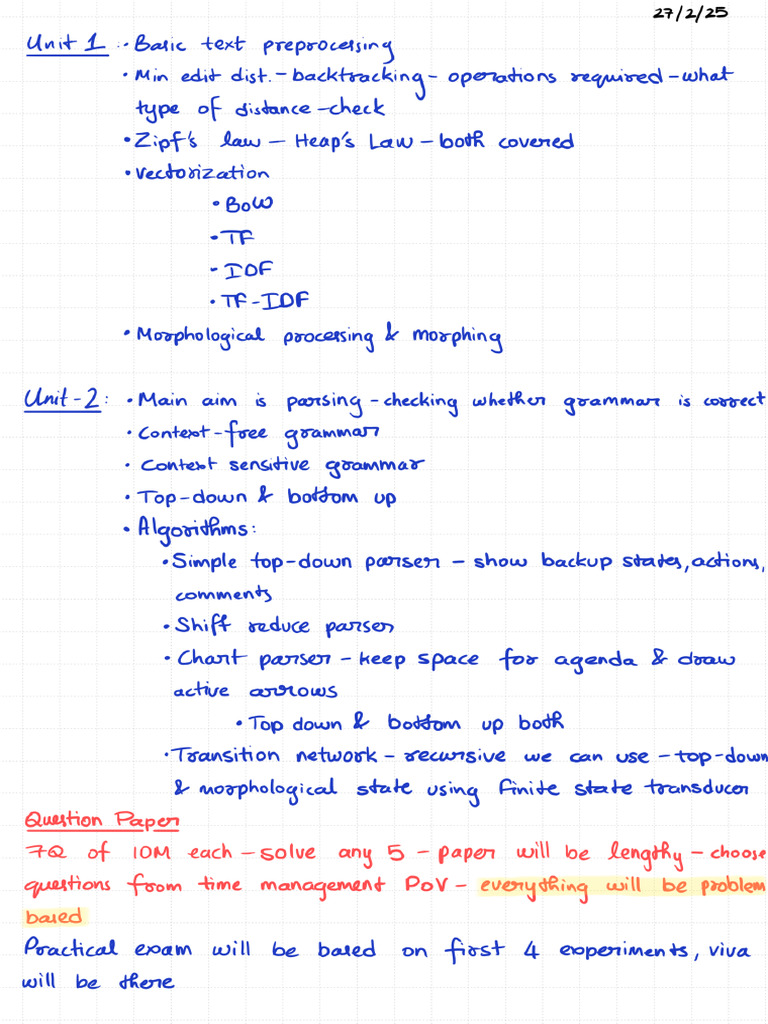 27/2/25
Unit 1 :• Basic text preprocessing
• Min edit dist. - backtracking - operations required - what
type of distance - check
• Zipf's law - Heap's Law - both covered
• Vectorization
• BoW
• TF
• IDF
• TF-IDF
• Morphological processing & morphing
Unit-2: • Main aim is parsing - checking whether grammar is correct
• Context-free grammar
• Context sensitive grammar
• Top-down & bottom up
• Algorithms:
• Simple top-down parser - show backup states, actions,
comments
• Shift reduce parser
• Chart parser - keep space for agenda & draw
active arrows
• Top down & bottom up both
• Transition network - recursive we can use - top-down
& morphological state using finite state transducer
Question Paper
7Q of 10M each - solve any 5 - paper will be lengthy - choose
questions from time management PoV - everything will be problem
based
Practical exam will be based on first 4 experiments, viva
will be there